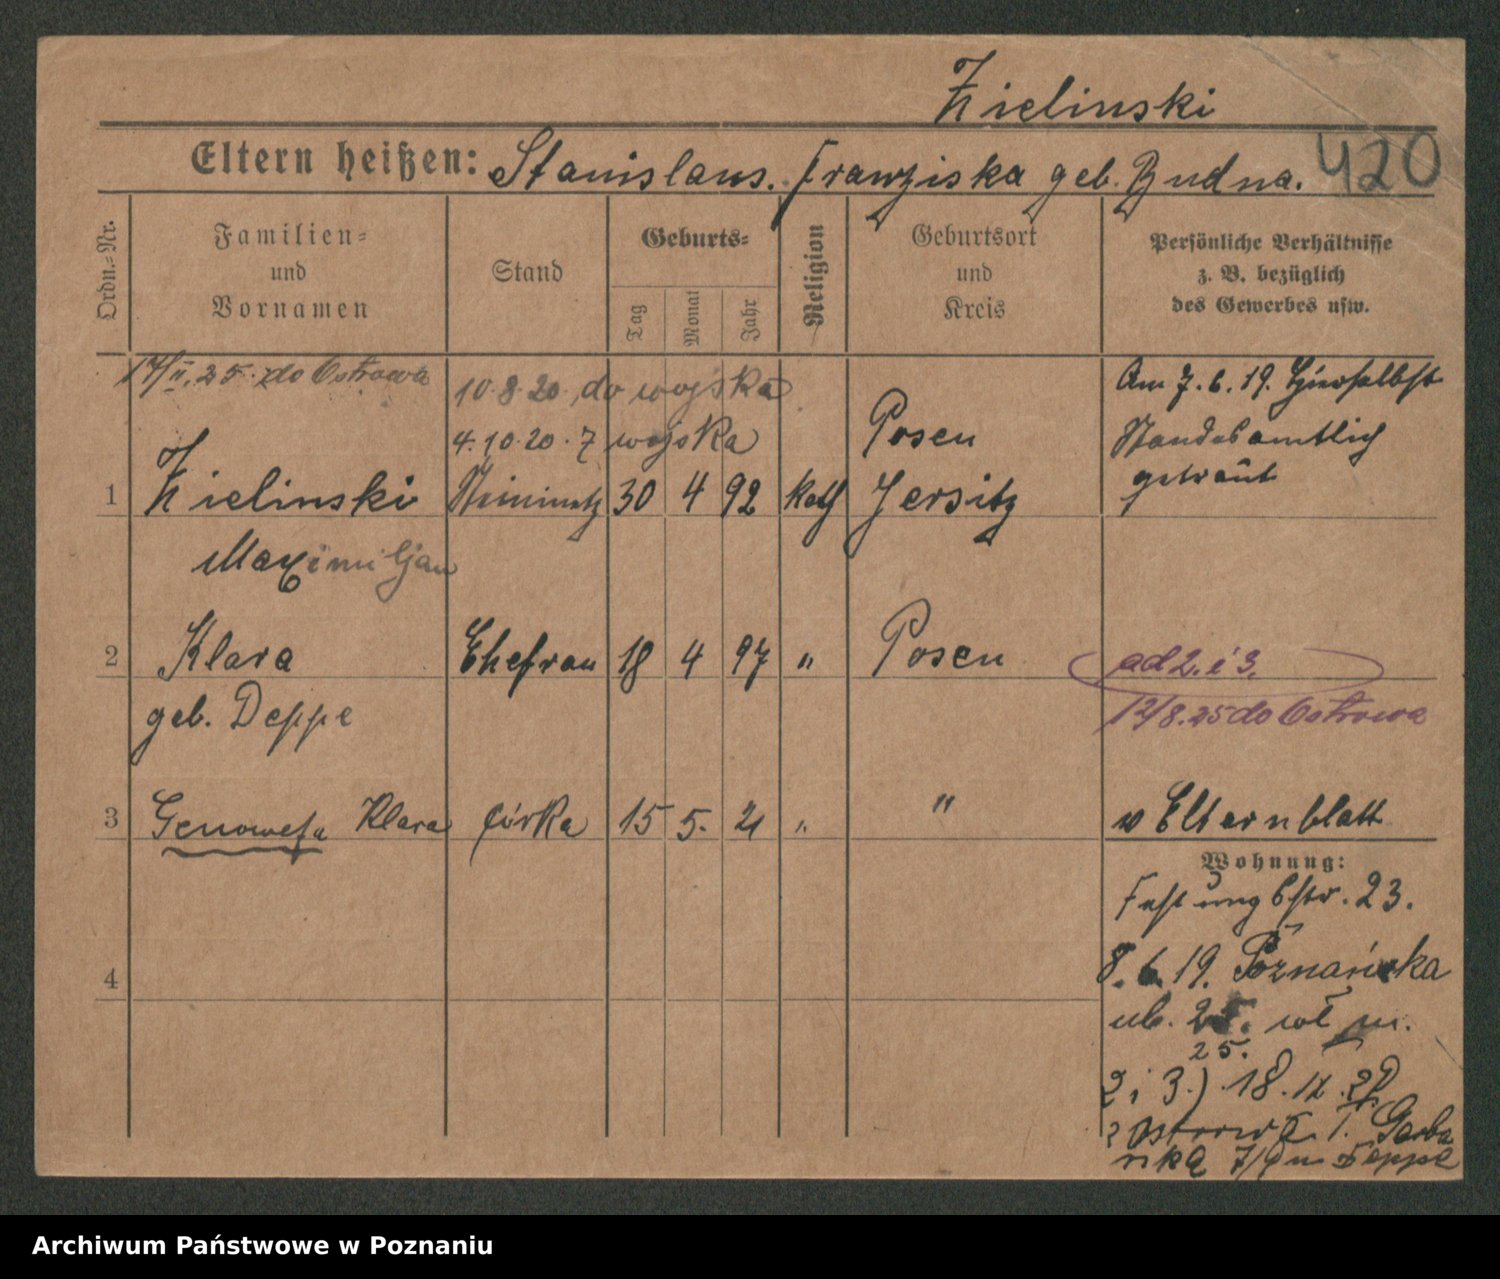 Zielinski
Eltern heißen: Stanislaus. Franziska geb. Budna. 420
Ordn.-Nr.
Familien-
und
Vornamen
Stand
Geburts-
Tag
Monat
Jahr
Religion
Geburtsort
und
Kreis
Persönliche Verhältnisse
z. B. bezüglich
des Gewerbes usw.
17/II. 25. do Ostrowa
10.8.20. do wojska
4.10.20. z wojska
Am 7.6.19. Hierselbst
Standesamtlich
getraut
1 Zielinski Steinmetz 30 4 92 kath Posen
Jersitz
Maximiljan
2 Klara Ehefrau 18 4 97 " Posen
geb. Deppe
ad 2. i 3.
12/8.25 do Ostrowa
3 Genowefa Klara córka 15 5. 21 " "
w Elternblatt
Wohnung:
Festungsstr. 23.
8.6.19. Poznańska
ub. 25. wł m.
25.
2 i 3.) 18.11.
z Ostrowa Garba
ska 7/ Deppe
4
Archiwum Państwowe w Poznaniu